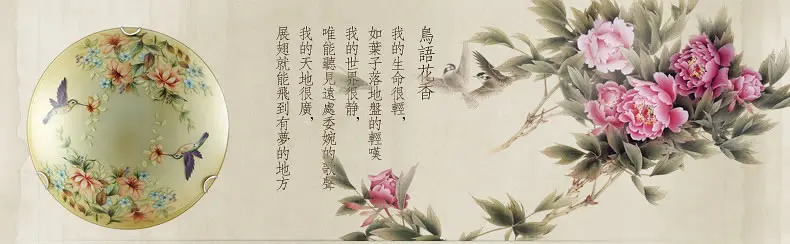 鳥語花香
我的生命很輕，
如葉子落地盤的輕嘆
我的世界很静，
唯能聽見遠處委婉的歌聲
我的天地很廣，
展翅就能飛到有夢的地方